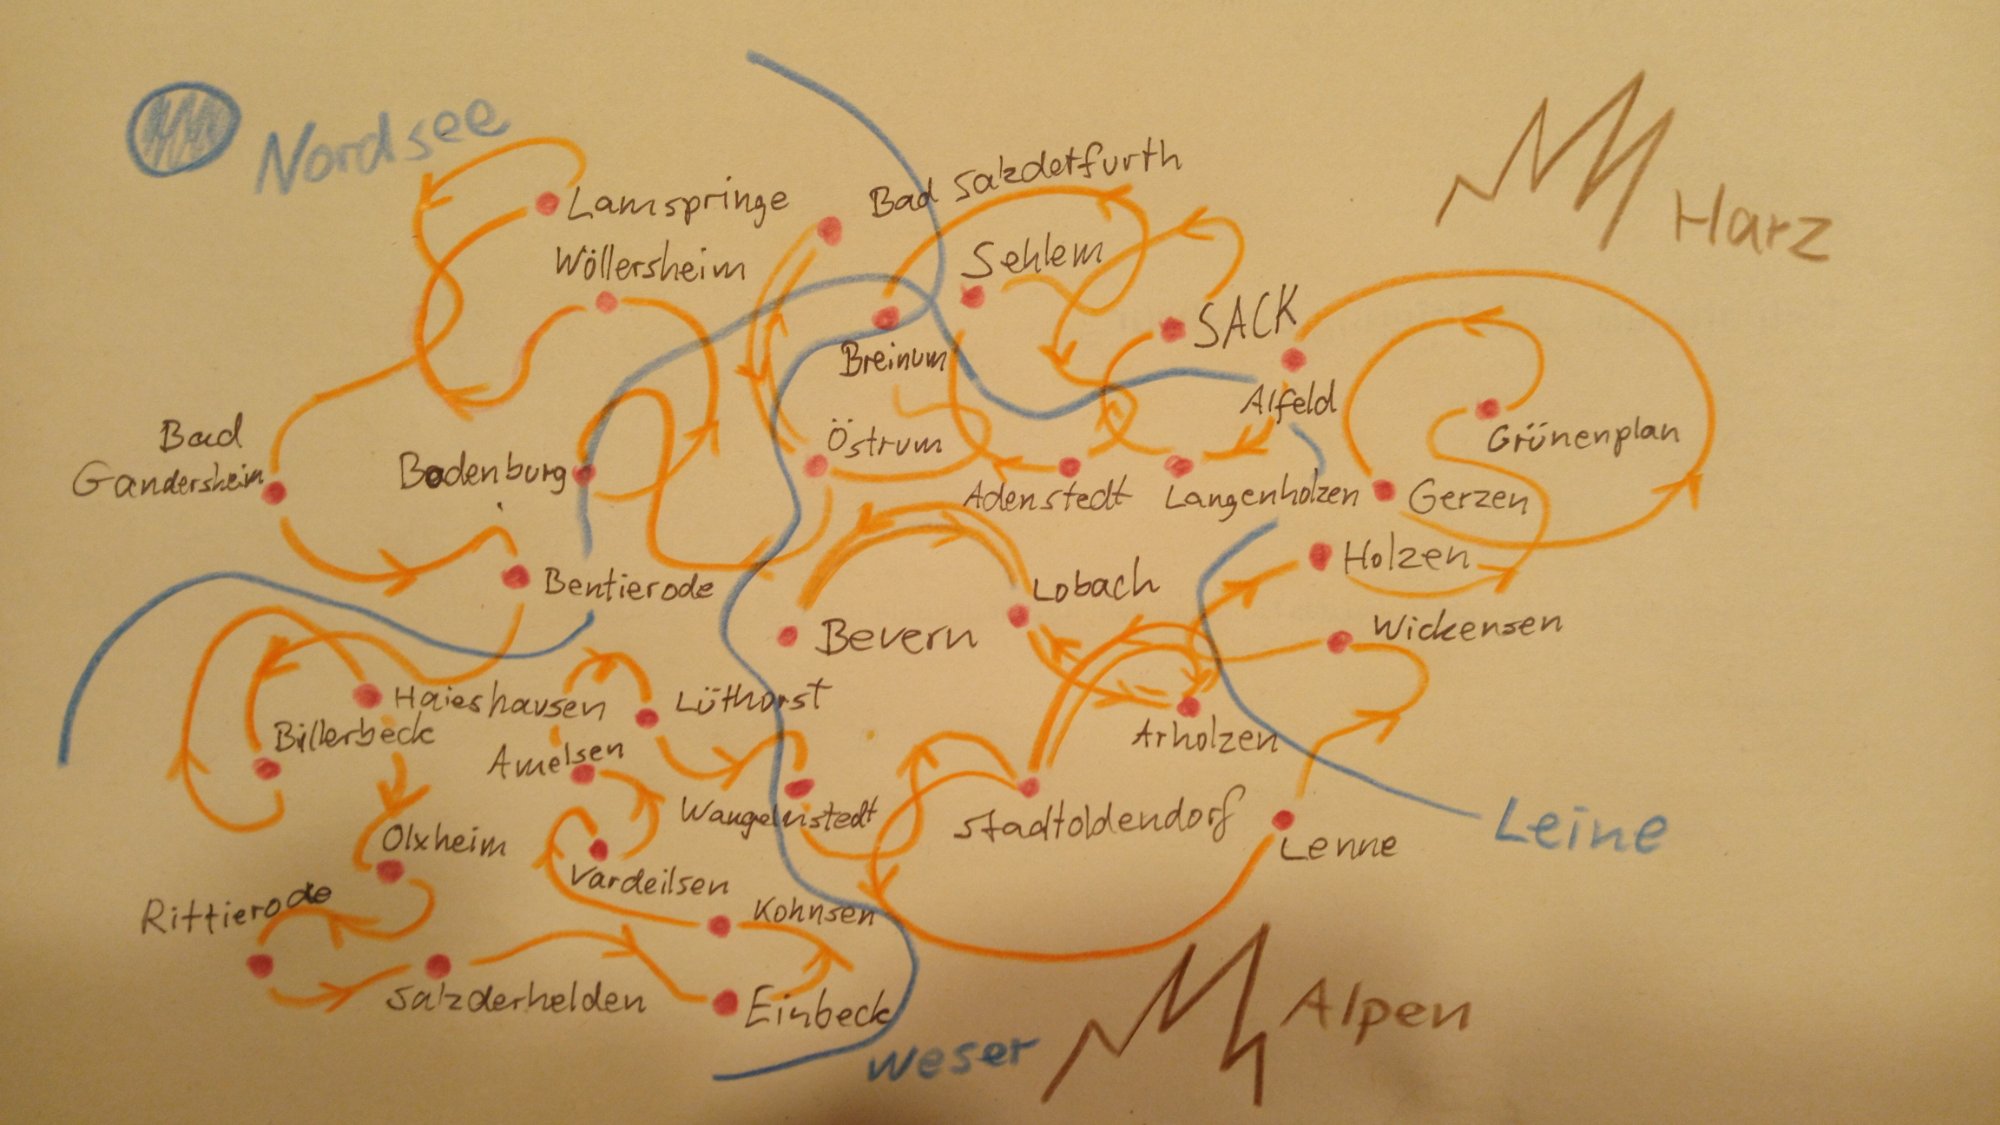 Nordsee
Lamspringe
Bad Salzdetfurth
Harz
Wöllersheim
Sehlem
SACK
Breinum
Alfeld
Bad
Gandersheim
Bodenburg
Östrum
Adenstedt
Langenholzen
Grünenplan
Gerzen
Bentierode
Holzen
Lobach
Bevern
Wickensen
Haieshausen
Lüthorst
Billerbeck
Amelsen
Arholzen
Wangelnstedt
Stadtoldendorf
Lenne
Leine
Olxheim
Vardeilsen
Rittierode
Kohnsen
Salzderhelden
Einbeck
Weser
Alpen